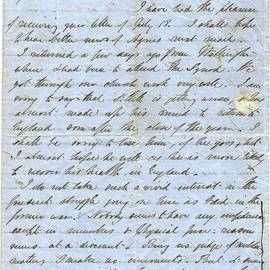 I have had the pleasure
of receiving your letter of July 18. I shall hope
to hear better news of Agnes next mail.
I returned a few days ago from
where I had been to attend the Synod. We
got through our church work very well. I am
sorry to say that is getting away
almost made up his mind to return to
England soon after the close of the year. I
shall be sorry to lose him, if he goes, but
I almost hope he will as he is more likely
to recover his health in England.
I do not take such a vivid interest in the
present struggle going on here as I did in the
former war. Nobody seems to have any confidence
except in numbers & Physical force: reason
seems at a discount. Being no judge of
matters I make no comments. But it